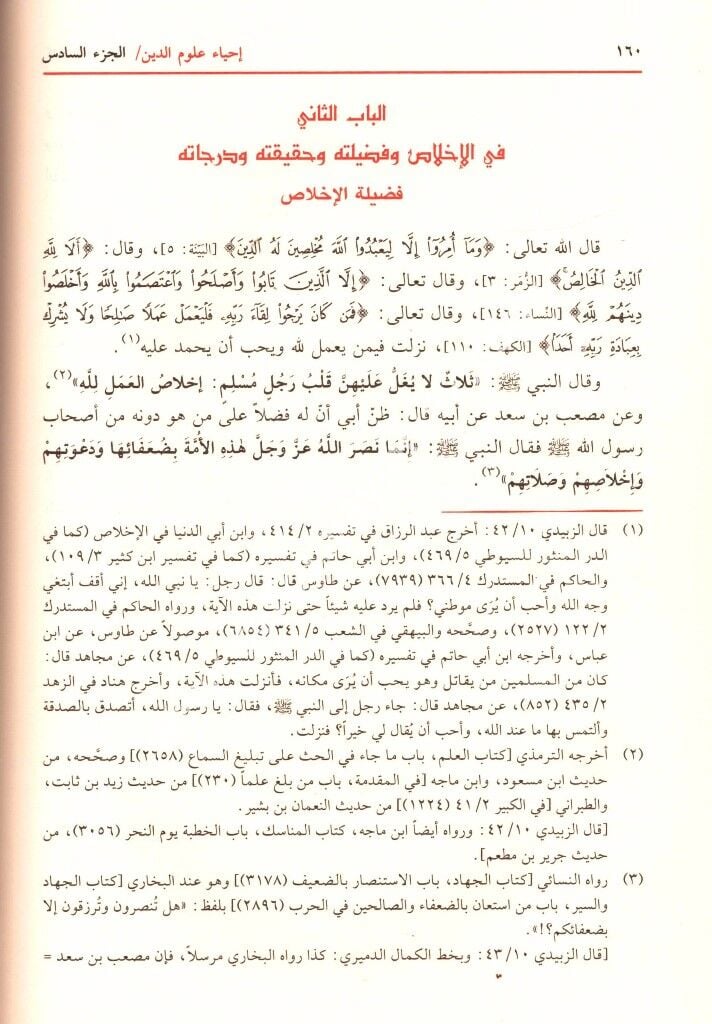 ١٦٠
إحياء علوم الدين/ الجزء السادس
الباب الثاني
في الإخلاص وفضيلته وحقيقته ودرجاته
فضيلة الإخلاص
قال الله تعالى: ﴿وَمَآ أُمِرُوٓا۟ إِلَّا لِيَعْبُدُوا۟ ٱللَّهَ مُخْلِصِينَ لَهُ ٱلدِّينَ﴾ [البيّنة: ٥]، وقال: ﴿أَلَا لِلَّهِ
ٱلدِّينُ ٱلْخَالِصُ﴾ [الزُّمَر: ٣]، وقال تعالى: ﴿إِلَّا ٱلَّذِينَ تَابُوا۟ وَأَصْلَحُوا۟ وَٱعْتَصَمُوا۟ بِٱللَّهِ وَأَخْلَصُوا۟
دِينَهُمْ لِلَّهِ﴾ [النّساء: ١٤٦]، وقال تعالى: ﴿فَمَن كَانَ يَرْجُوا۟ لِقَآءَ رَبِّهِۦ فَلْيَعْمَلْ عَمَلًا صَٰلِحًا وَلَا يُشْرِكْ
بِعِبَادَةِ رَبِّهِۦٓ أَحَدًا﴾ [الكهف: ١١٠]، نزلت فيمن يعمل لله ويحب أن يحمد عليه(١).
وقال النبي ﷺ: «ثَلاثٌ لا يُغَلُّ عَلَيْهِنَّ قَلْبُ رَجُلٍ مُسْلِمٍ: إخلاصُ العَمَلِ لِلَّهِ»(٢)،
وعن مصعب بن سعد عن أبيه قال: ظنّ أبي أنّ له فضلاً على من هو دونه من أصحاب
رسول الله ﷺ فقال النبي ﷺ: «إنَّمَا نَصَرَ اللَّهُ عَزَّ وَجَلَّ هٰذِهِ الأُمَّةَ بِضُعَفَائِهَا وَدَعْوَتِهِمْ
وَإِخْلاصِهِمْ وَصَلَاتِهِمْ»(٣).
(١) قال الزبيدي ٤٢/١٠: أخرج عبد الرزاق في تفسيره ٤١٤/٢، وابن أبي الدنيا في الإخلاص (كما في
الدر المنثور للسيوطي ٤٦٩/٥)، وابن أبي حاتم في تفسيره (كما في تفسير ابن كثير ١٠٩/٣)،
والحاكم في المستدرك ٣٦٦/٤ (٧٩٣٩)، عن طاوس قال: قال رجل: يا نبي الله، إني أقف أبتغي
وجه الله وأحب أن يُرَى موطني؟ فلم يرد عليه شيئاً حتى نزلت هذه الآية، ورواه الحاكم في المستدرك
١٢٢/٢ (٢٥٢٧)، وصحَّحه والبيهقي في الشعب ٣٤١/٥ (٦٨٥٤)، موصولاً عن طاوس، عن ابن
عباس، وأخرجه ابن أبي حاتم في تفسيره (كما في الدر المنثور للسيوطي ٤٦٩/٥)، عن مجاهد قال:
كان من المسلمين من يقاتل وهو يحب أن يُرَى مكانه، فأنزلت هذه الآية، وأخرج هناد في الزهد
٤٣٥/٢ (٨٥٢)، عن مجاهد قال: جاء رجل إلى النبي ﷺ، فقال: يا رسول الله، أتصدق بالصدقة
وألتمس بها ما عند الله، وأحب أن يُقال لي خيراً؟ فنزلت.
(٢) أخرجه الترمذي [كتاب العلم، باب ما جاء في الحث على تبليغ السماع (٢٦٥٨)] وصحَّحه، من
حديث ابن مسعود، وابن ماجه [في المقدمة، باب من بلغ علماً (٢٣٠)] من حديث زيد بن ثابت،
والطبراني [في الكبير ٤١/٢ (١٢٢٤)] من حديث النعمان بن بشير.
[قال الزبيدي ٤٢/١٠: ورواه أيضاً ابن ماجه، كتاب المناسك، باب الخطبة يوم النحر (٣٠٥٦)، من
حديث جرير بن مطعم].
(٣) رواه النسائي [كتاب الجهاد، باب الاستنصار بالضعيف (٣١٧٨)] وهو عند البخاري [كتاب الجهاد
والسير، باب من استعان بالضعفاء والصالحين في الحرب (٢٨٩٦)] بلفظ: «هل تُنصرون وتُرزقون إلا
بضعفائكم؟!».
[قال الزبيدي ٤٣/١٠: وبخط الكمال الدميري: كذا رواه البخاري مرسلاً، فإن مصعب بن سعد =